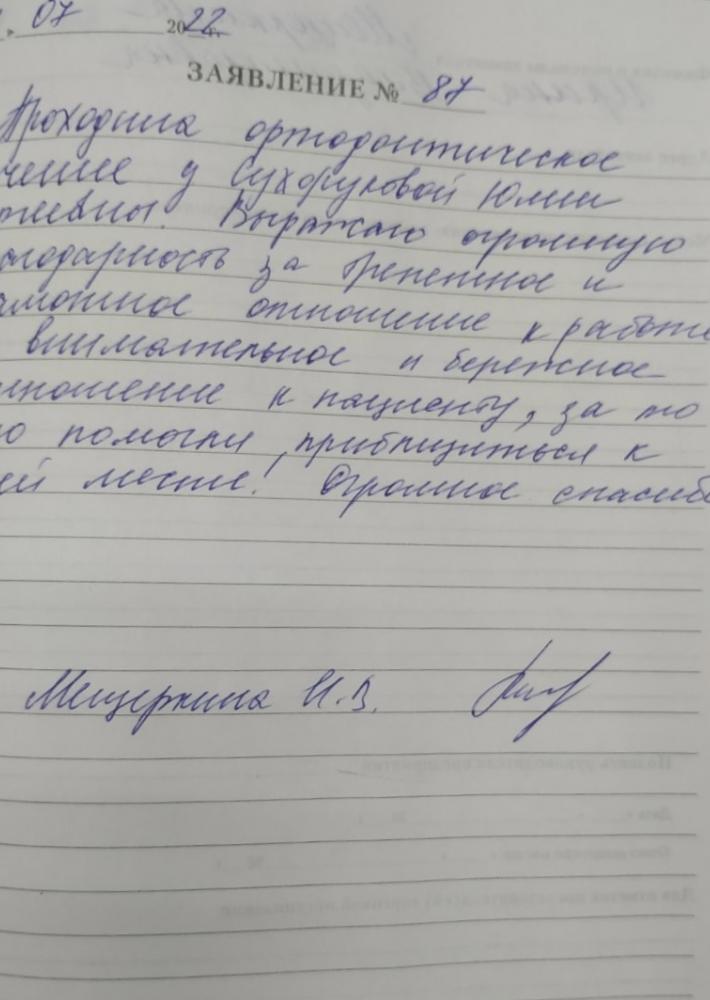 07 2022 г.
ЗАЯВЛЕНИЕ № 87
Проходила ортодонтическое
чение у Сухоруковой Юлии
Выражаю огромную
лагодарность за трепетное и
амотное отношение к работе
внимательное и бережное
тношение к пациенту, за то
то помогли приблизиться к
ей мечте! Огромное спасибо
Мещеркина И.В.